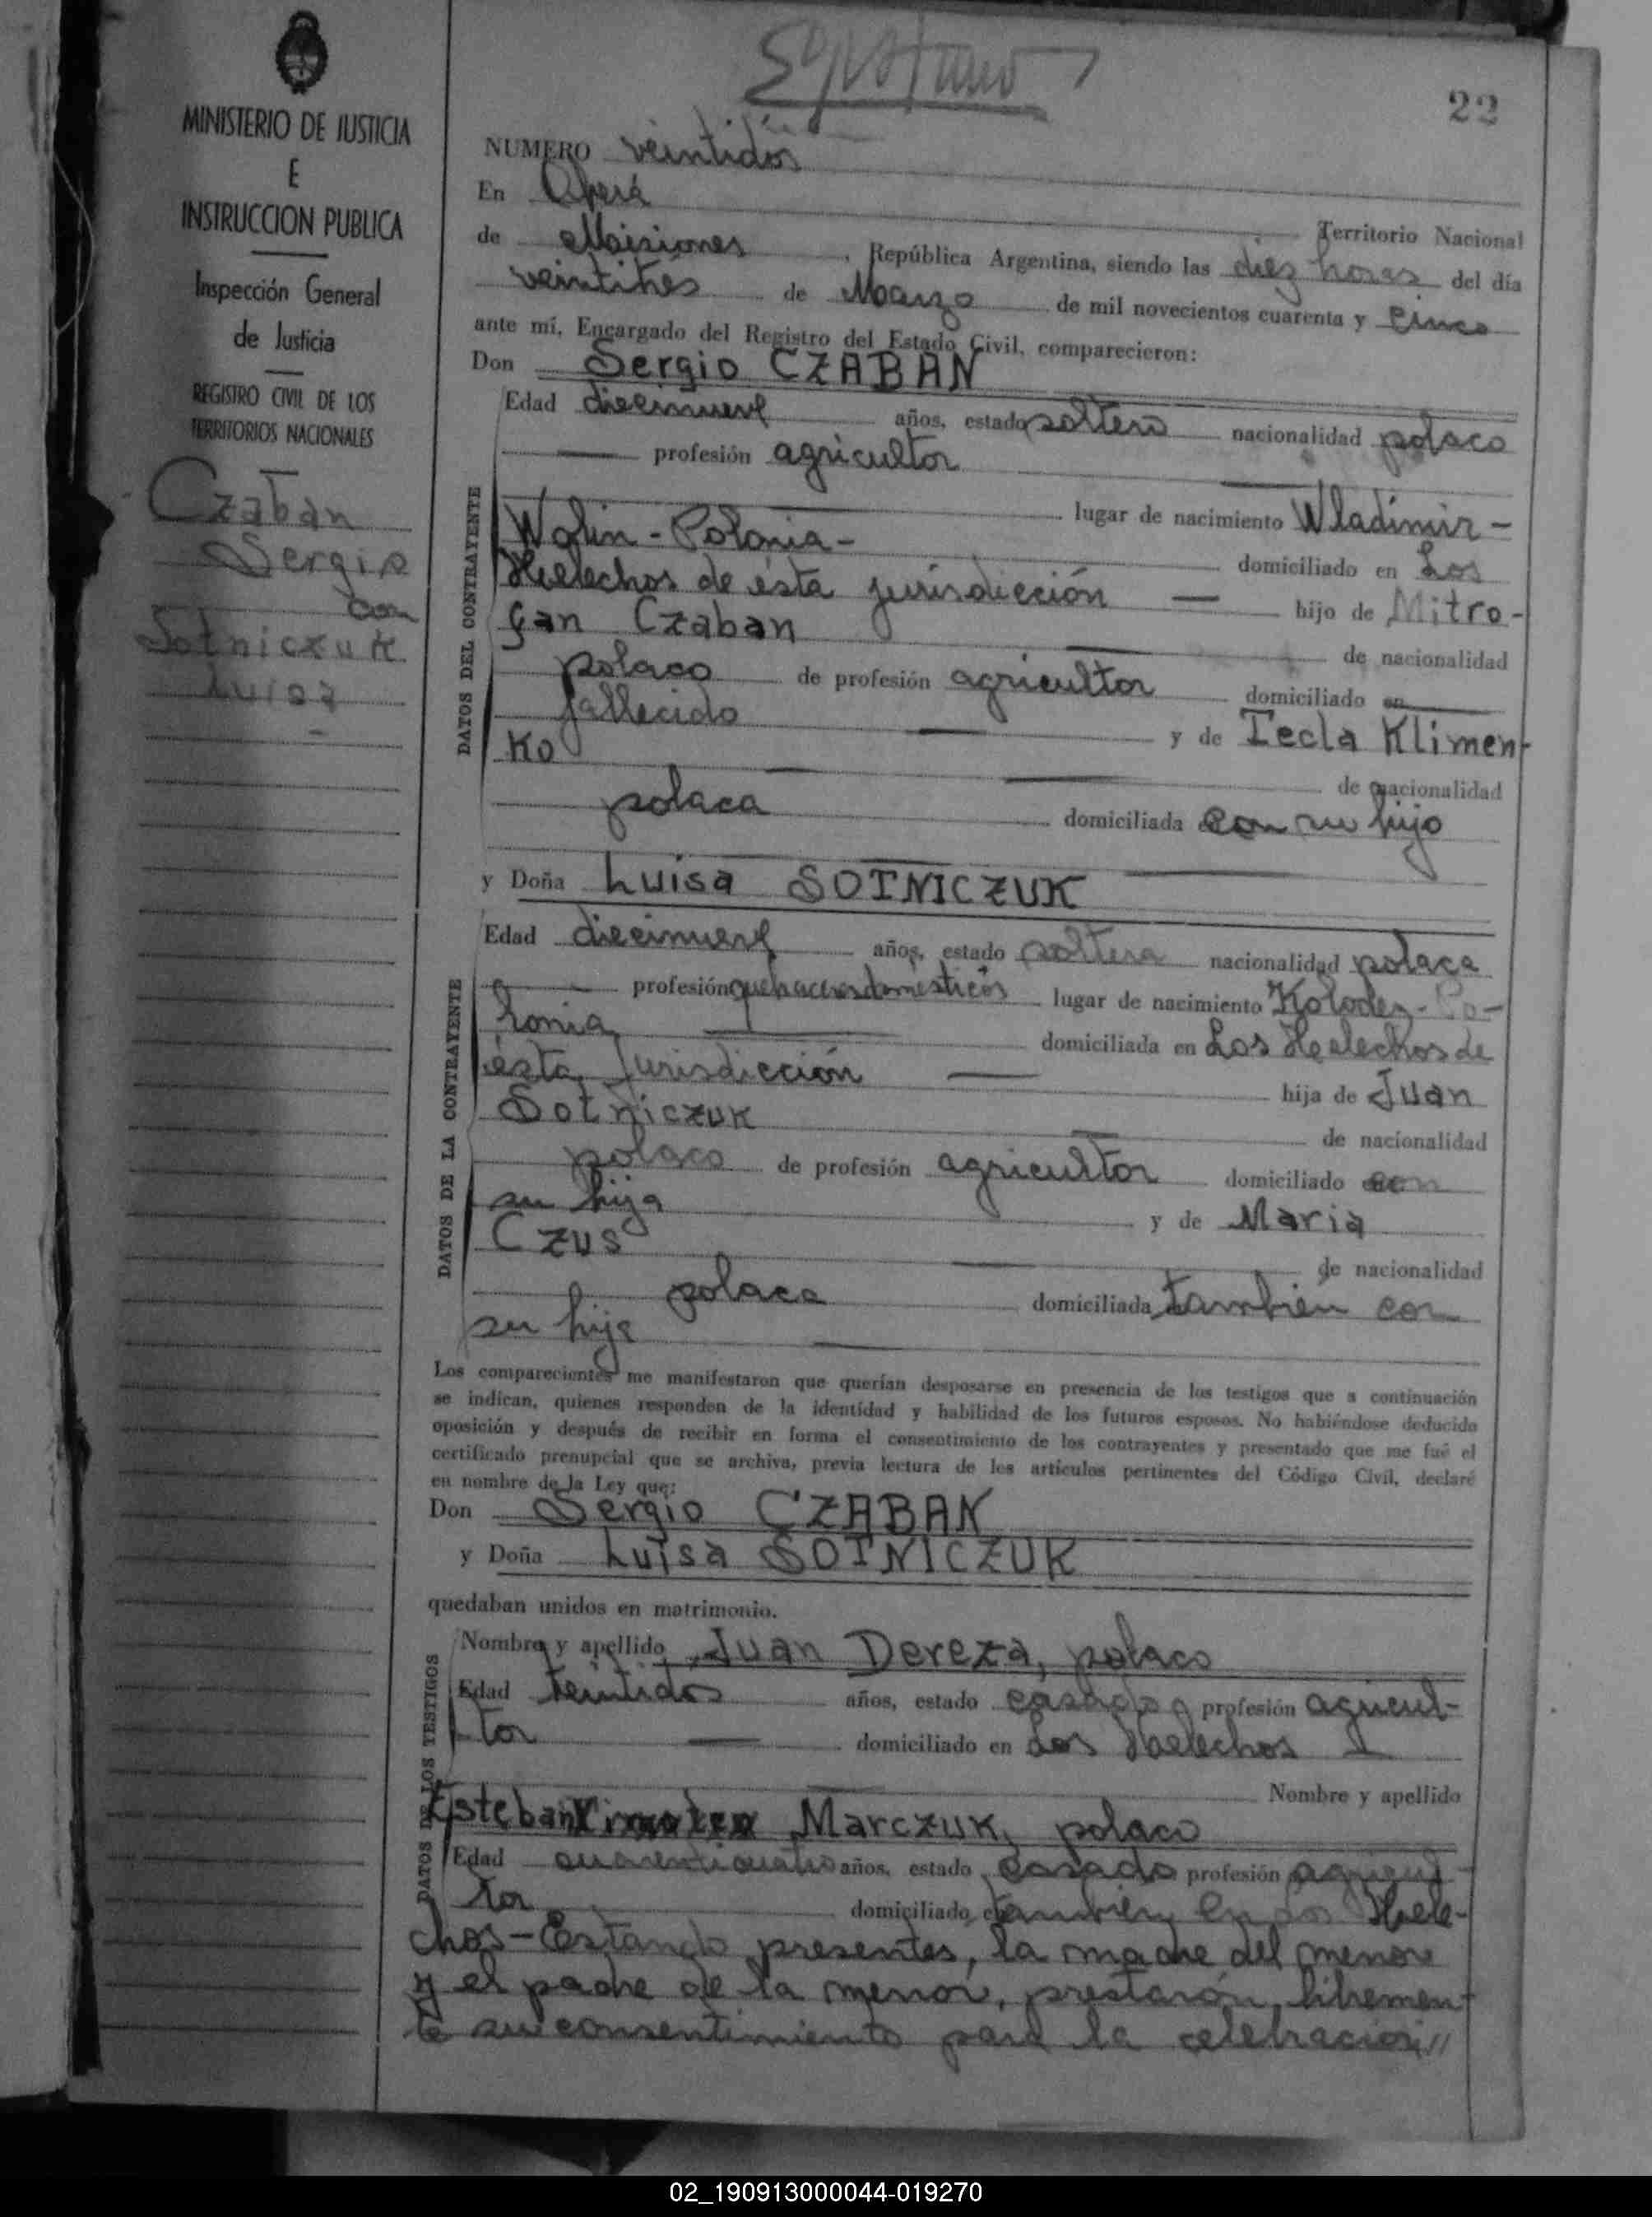 22
MINISTERIO DE JUSTICIA
E
INSTRUCCION PUBLICA
Inspección General
de Justicia
REGISTRO CIVIL DE LOS
TERRITORIOS NACIONALES
Czaban
Sergio
con
Sotniczuk
Luisa
NUMERO veintidós
En Oberá
Territorio Nacional
de Misiones, República Argentina, siendo las diez horas del día
veintitrés de Marzo de mil novecientos cuarenta y cinco
ante mí, Encargado del Registro del Estado Civil, comparecieron:
Don Sergio CZABAN
DATOS DEL CONTRAYENTE
Edad diecinueve años, estado soltero nacionalidad polaco
profesión agricultor
lugar de nacimiento Wladimir-
Wolin-Polonia- domiciliado en Los
Helechos de ésta jurisdicción — hijo de Mitro-
fan Czaban de nacionalidad
polaco de profesión agricultor domiciliado en
fallecido — y de Tecla Klimen-
ko de nacionalidad
polaca domiciliada con su hijo
y Doña Luisa SOTNICZUK
DATOS DE LA CONTRAYENTE
Edad diecinueve años, estado soltera nacionalidad polaca
profesión quehaceres domésticos lugar de nacimiento Kolodez-Po-
lonia domiciliada en Los Helechos de
ésta Jurisdicción — hija de Juan
Sotniczuk de nacionalidad
polaco de profesión agricultor domiciliado con
su hija y de Maria
Czus de nacionalidad
polaca domiciliada también con
su hija
Los comparecientes me manifestaron que querían desposarse en presencia de los testigos que a continuación
se indican, quienes responden de la identidad y habilidad de los futuros esposos. No habiéndose deducido
oposición y después de recibir en forma el consentimiento de los contrayentes y presentado que me fué el
certificado prenupcial que se archiva, previa lectura de los artículos pertinentes del Código Civil, declaré
en nombre de la Ley que:
Don Sergio CZABAN
y Doña Luisa SOTNICZUK
quedaban unidos en matrimonio.
DATOS DE LOS TESTIGOS
Nombre y apellido Juan Dereza, polaco
Edad veintidos años, estado casado profesión agricul-
tor — domiciliado en Los Helechos
Nombre y apellido
Esteban Marczuk, polaco
Edad cuarenticuatro años, estado casado profesión agricul-
tor domiciliado también en Los Hele-
chos-Estando presentes, la madre del menor
y el padre de la menor, prestarón libremen-
te su consentimiento para la celebración//
02_190913000044-019270